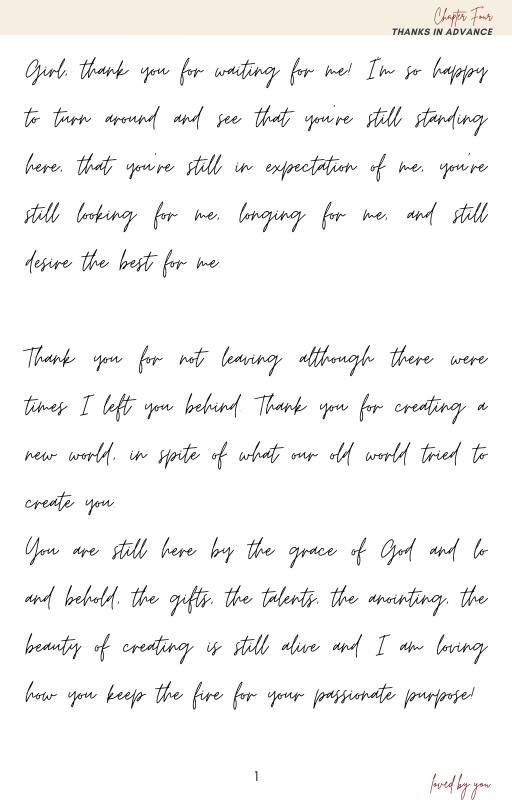 Chapter Four
THANKS IN ADVANCE
Girl, thank you for waiting for me! I'm so happy
to turn around and see that you're still standing
here, that you're still in expectation of me, you're
still looking for me, longing for me, and still
desire the best for me.
Thank you for not leaving although there were
times I left you behind. Thank you for creating a
new world, in spite of what our old world tried to
create you.
You are still here by the grace of God and lo
and behold, the gifts, the talents, the anointing, the
beauty of creating is still alive and I am loving
how you keep the fire for your passionate purpose!
1
loved by you